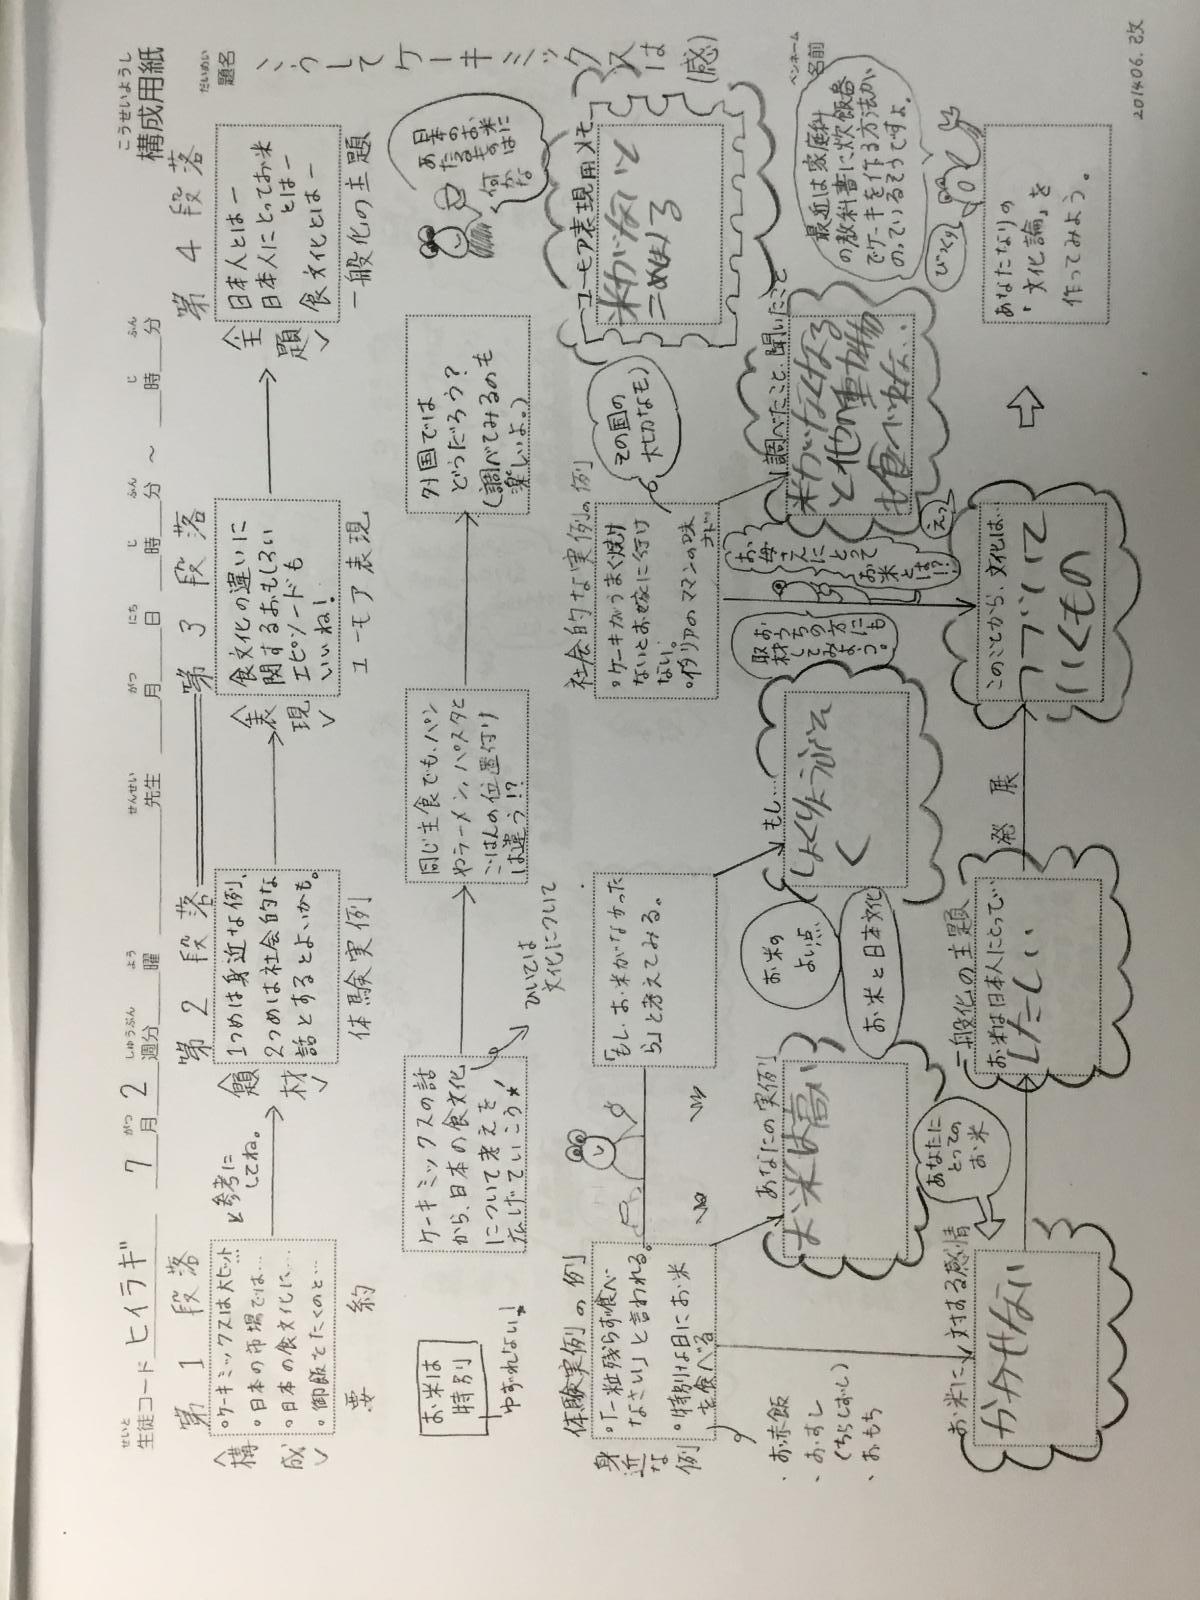 構成用紙
こうせいようし
生徒コード ヒイラギ 7月2週分 曜 先生 月 日 時 分 〜 時 分
せいと がつ しゅうぶん よう せんせい がつ にち じ ふん じ ふん
題名 こうしてケーキミックスは(感)
だいめい
ペンネーム
名前
第1段落
第2段落
第3段落
第4段落
<構成>
。ケーキミックスは大ヒット…
。日本の市場では…
。日本の食文化に…
。御飯をたくのと…
要約
と参考に
してね。
<題材>
1つめは身近な例、
2つめは社会的な
話とするとよいかも。
体験実例
<表現>
食文化の違いに
関するおもしろい
エピソードも
いいね!
ユーモア表現
<主題>
日本人とはー
日本人にとってお米
とはー
食文化とはー
一般化の主題
お米は
特別
ゆずれない!
ケーキミックスの話
から、日本の食文化
について考えを
広げていこう
ひいては
文化について
同じ主食でも、パン
やラーメン、パスタと
ごはんの位置付け
は違う!?
外国では
どうだろう?
(調べてみるのも
楽しいよ。)
日本の
お米に
あたる
ものは
何かな
身近な例
体験実例の例
。「一粒残らず食べ
なさい」と言われる。
。特別な日にお米
を食べる
・お赤飯
・おすし
(ちらしずし)
・おもち
「もし、お米がなかった
ら」と考えてみる。
社会的な実例の例
。ケーキがうまく焼け
ないとお嫁に行け
ない。
。イタリアのママンの味
その国の
大切なもの
ユーモア表現用メモ
米がないと
こめ
あなたの実例
お米は高い
お米の
よい点
お米と日本文化
もし…
しょくりょうがな
く
取材してみよう。
おうちの方にも
お母さんに
とって
お米とは!?
えっ
調べたこと、聞いたこと
米がなくなる
と他の動物
も食べ
最近は家庭科
の教科書に炊飯器
でケーキを作る方法が
のっているそうですよ。
びっくり
お米に対する感情
かかせない
あなたに
とっての
お米
一般化の主題
お米は日本人にとって…
したしい
発展
このことから、文化は…
つづいて
いくもの
あなたなりの
「文化論」を
作ってみよう。
201406.改